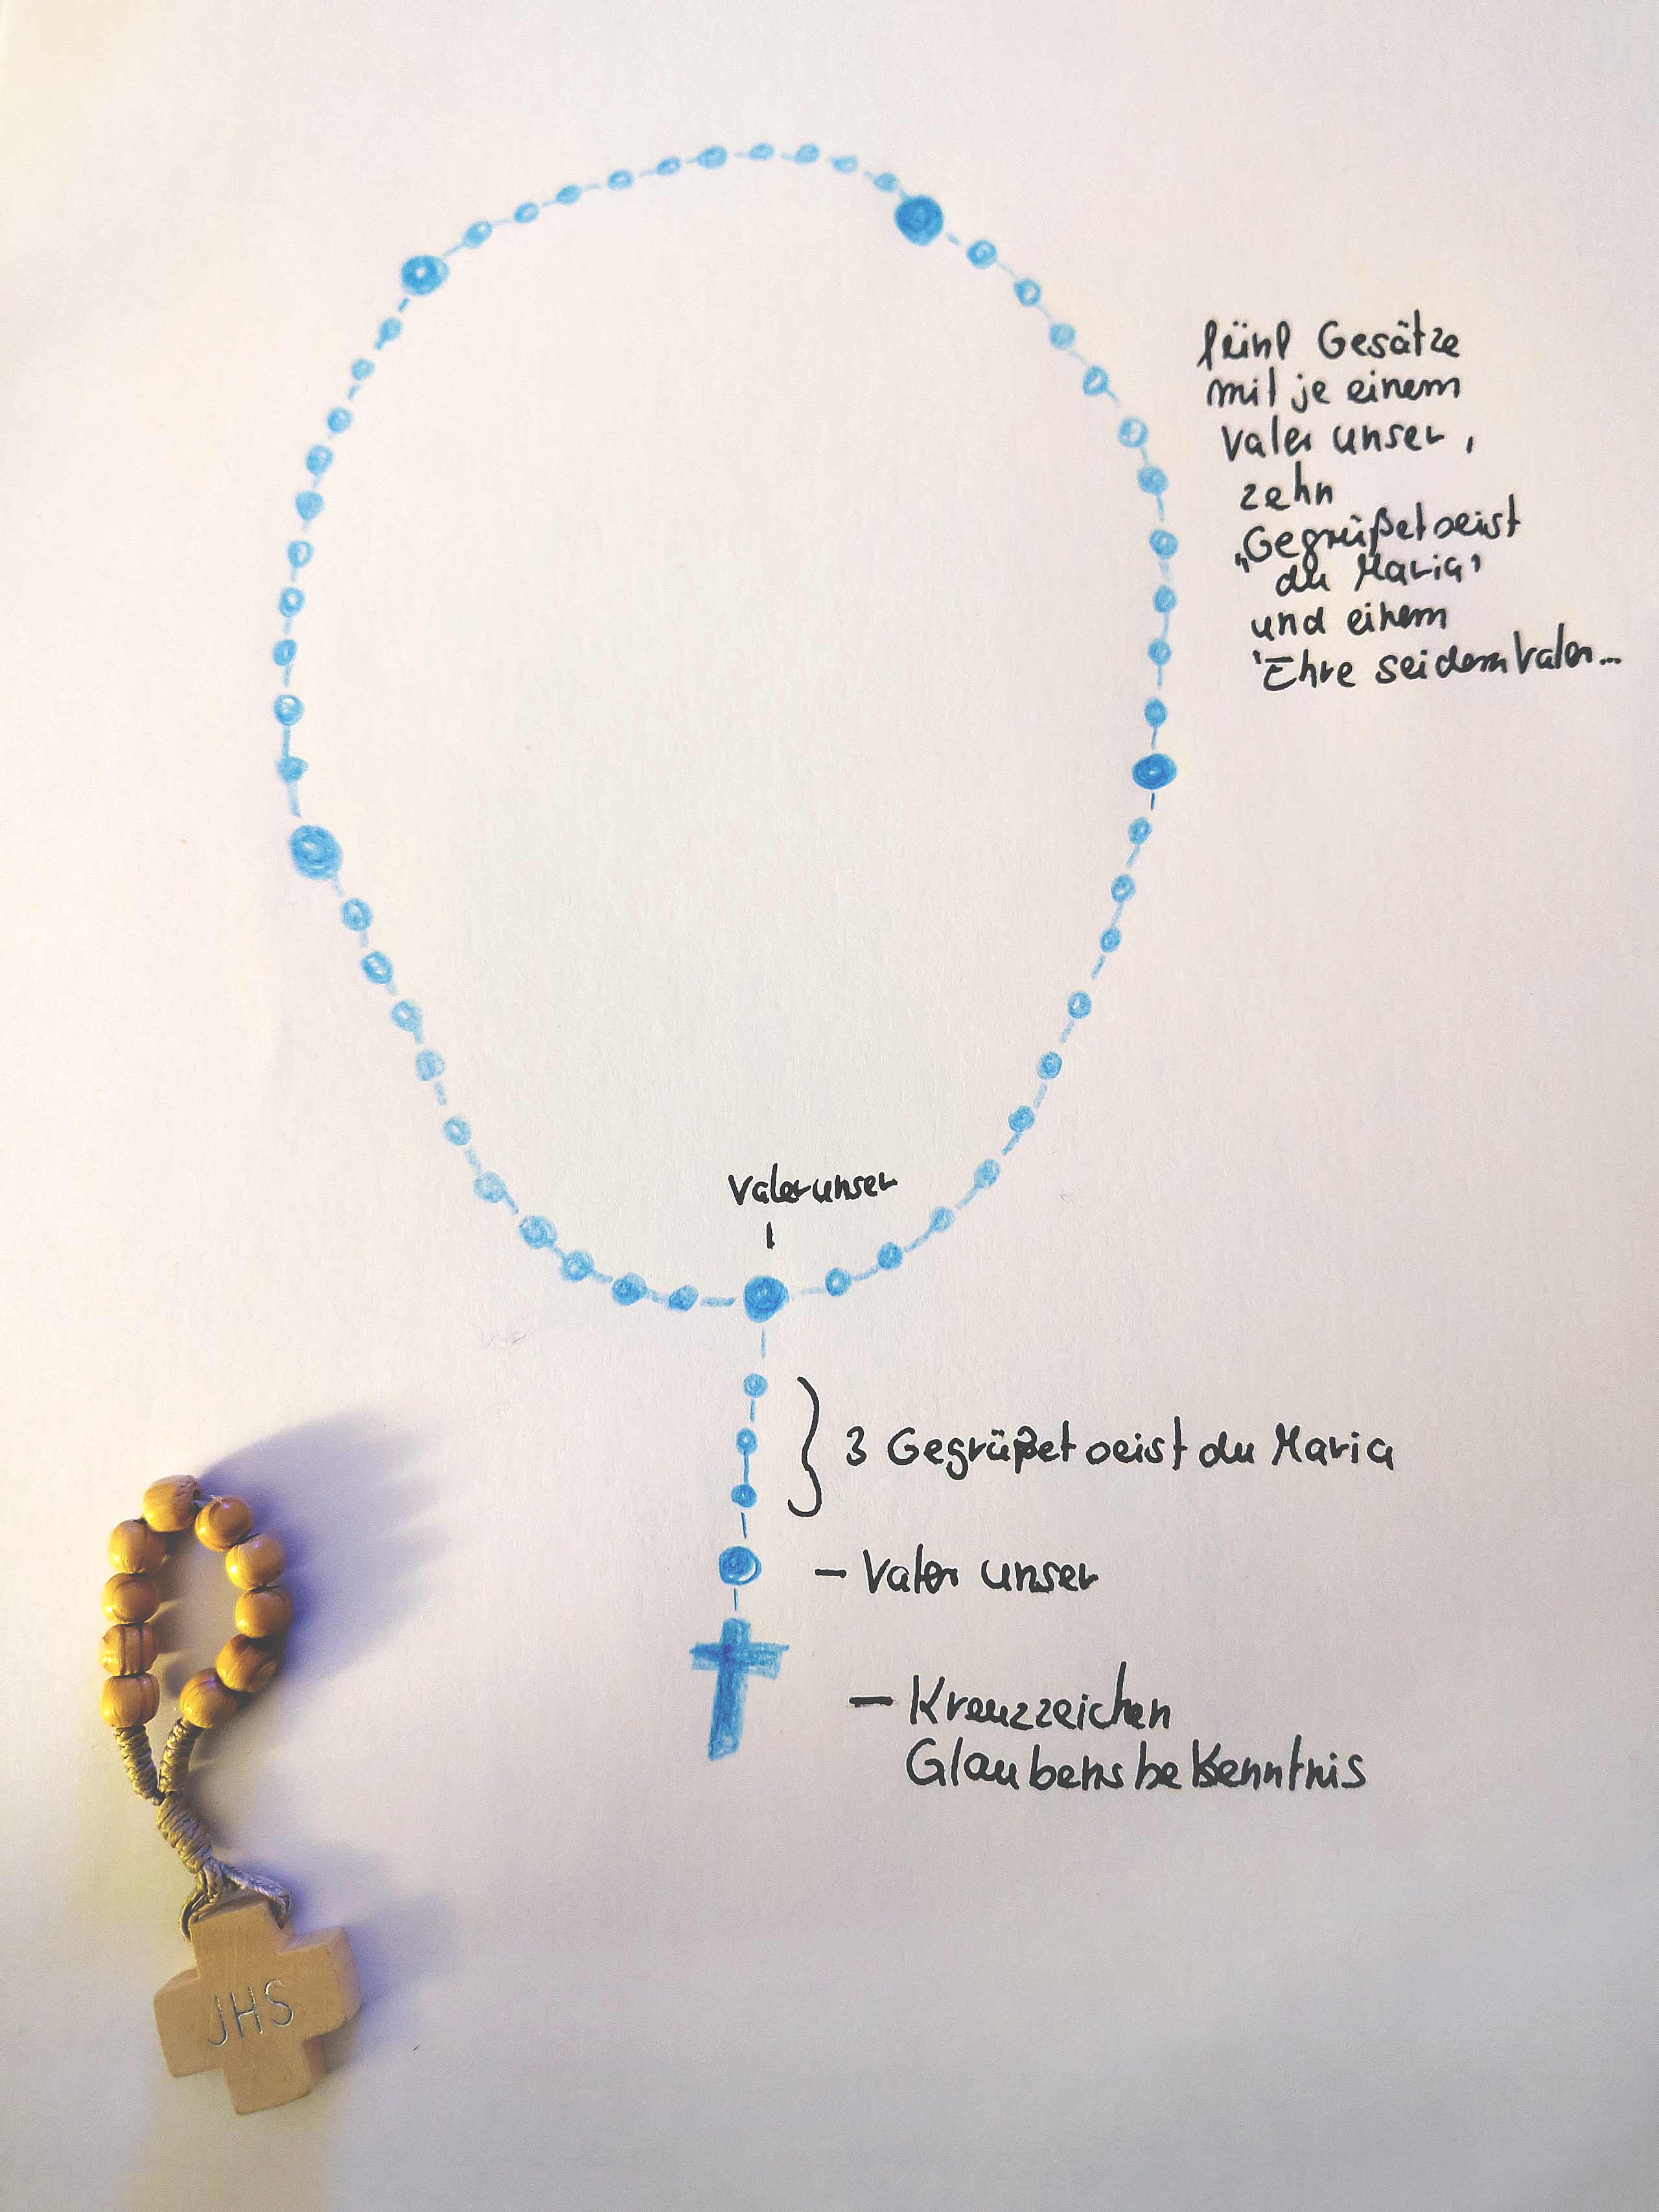 fünf Gesätze
mit je einem
Vater unser,
zehn
„Gegrüßet seist
du Maria"
und einem
'Ehre sei dem Vater...
Vaterunser
3 Gegrüßet seist du Maria
– Vater unser
– Kreuzzeichen
Glaubensbekenntnis
JHS